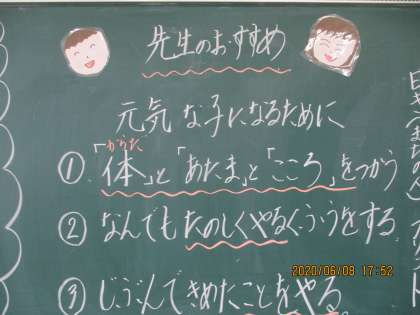 先生のおすすめ
元気な子になるために
からだ
①「体」と「あたま」と「こころ」をつかう
②なんでもたのしくやるくふうをする
③じぶんできめたことをやる。
2020/06/08 17:52